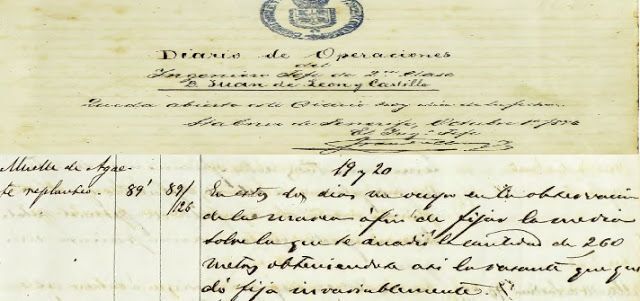 Diario de Operaciones
del
Ingeniero Jefe de 2ª clase
D. Juan de Leon y Castillo
Queda abierto este Diario hoy dia de la fecha.
Sta Cruz de Tenerife, Octubre 1º
El Ing. Jefe
19 y 20
Muelle de Agae-
te replanteo.
89' 89/126
En estos dos dias me ocupé en la observacion
de la marea á fin de fijar la media
sobre la que se añadió la cantidad de 2,60
metros obteniendose asi la rasante que que-
dó fija invariablemente.